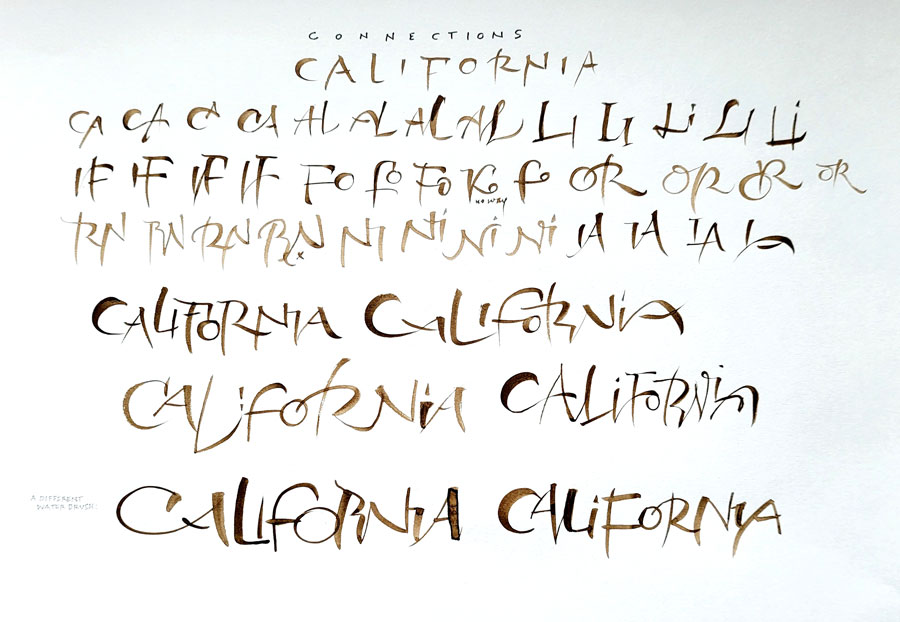 CONNECTIONS
CALIFORNIA
CA CA CA CA AL AL AL AL LI LI Li LI Li
IF IF IF IF FO FO FO FO FO OR OR OR OR
NO WAY
RN RN RN RN NI Ni Ni Ni IA IA IA IA
CALIFORNIA CALIFORNiA
CALiFORNiA CALiFORNiA
A DIFFERENT
WATER BRUSH:
CALIFORNIA CALiFORNIA